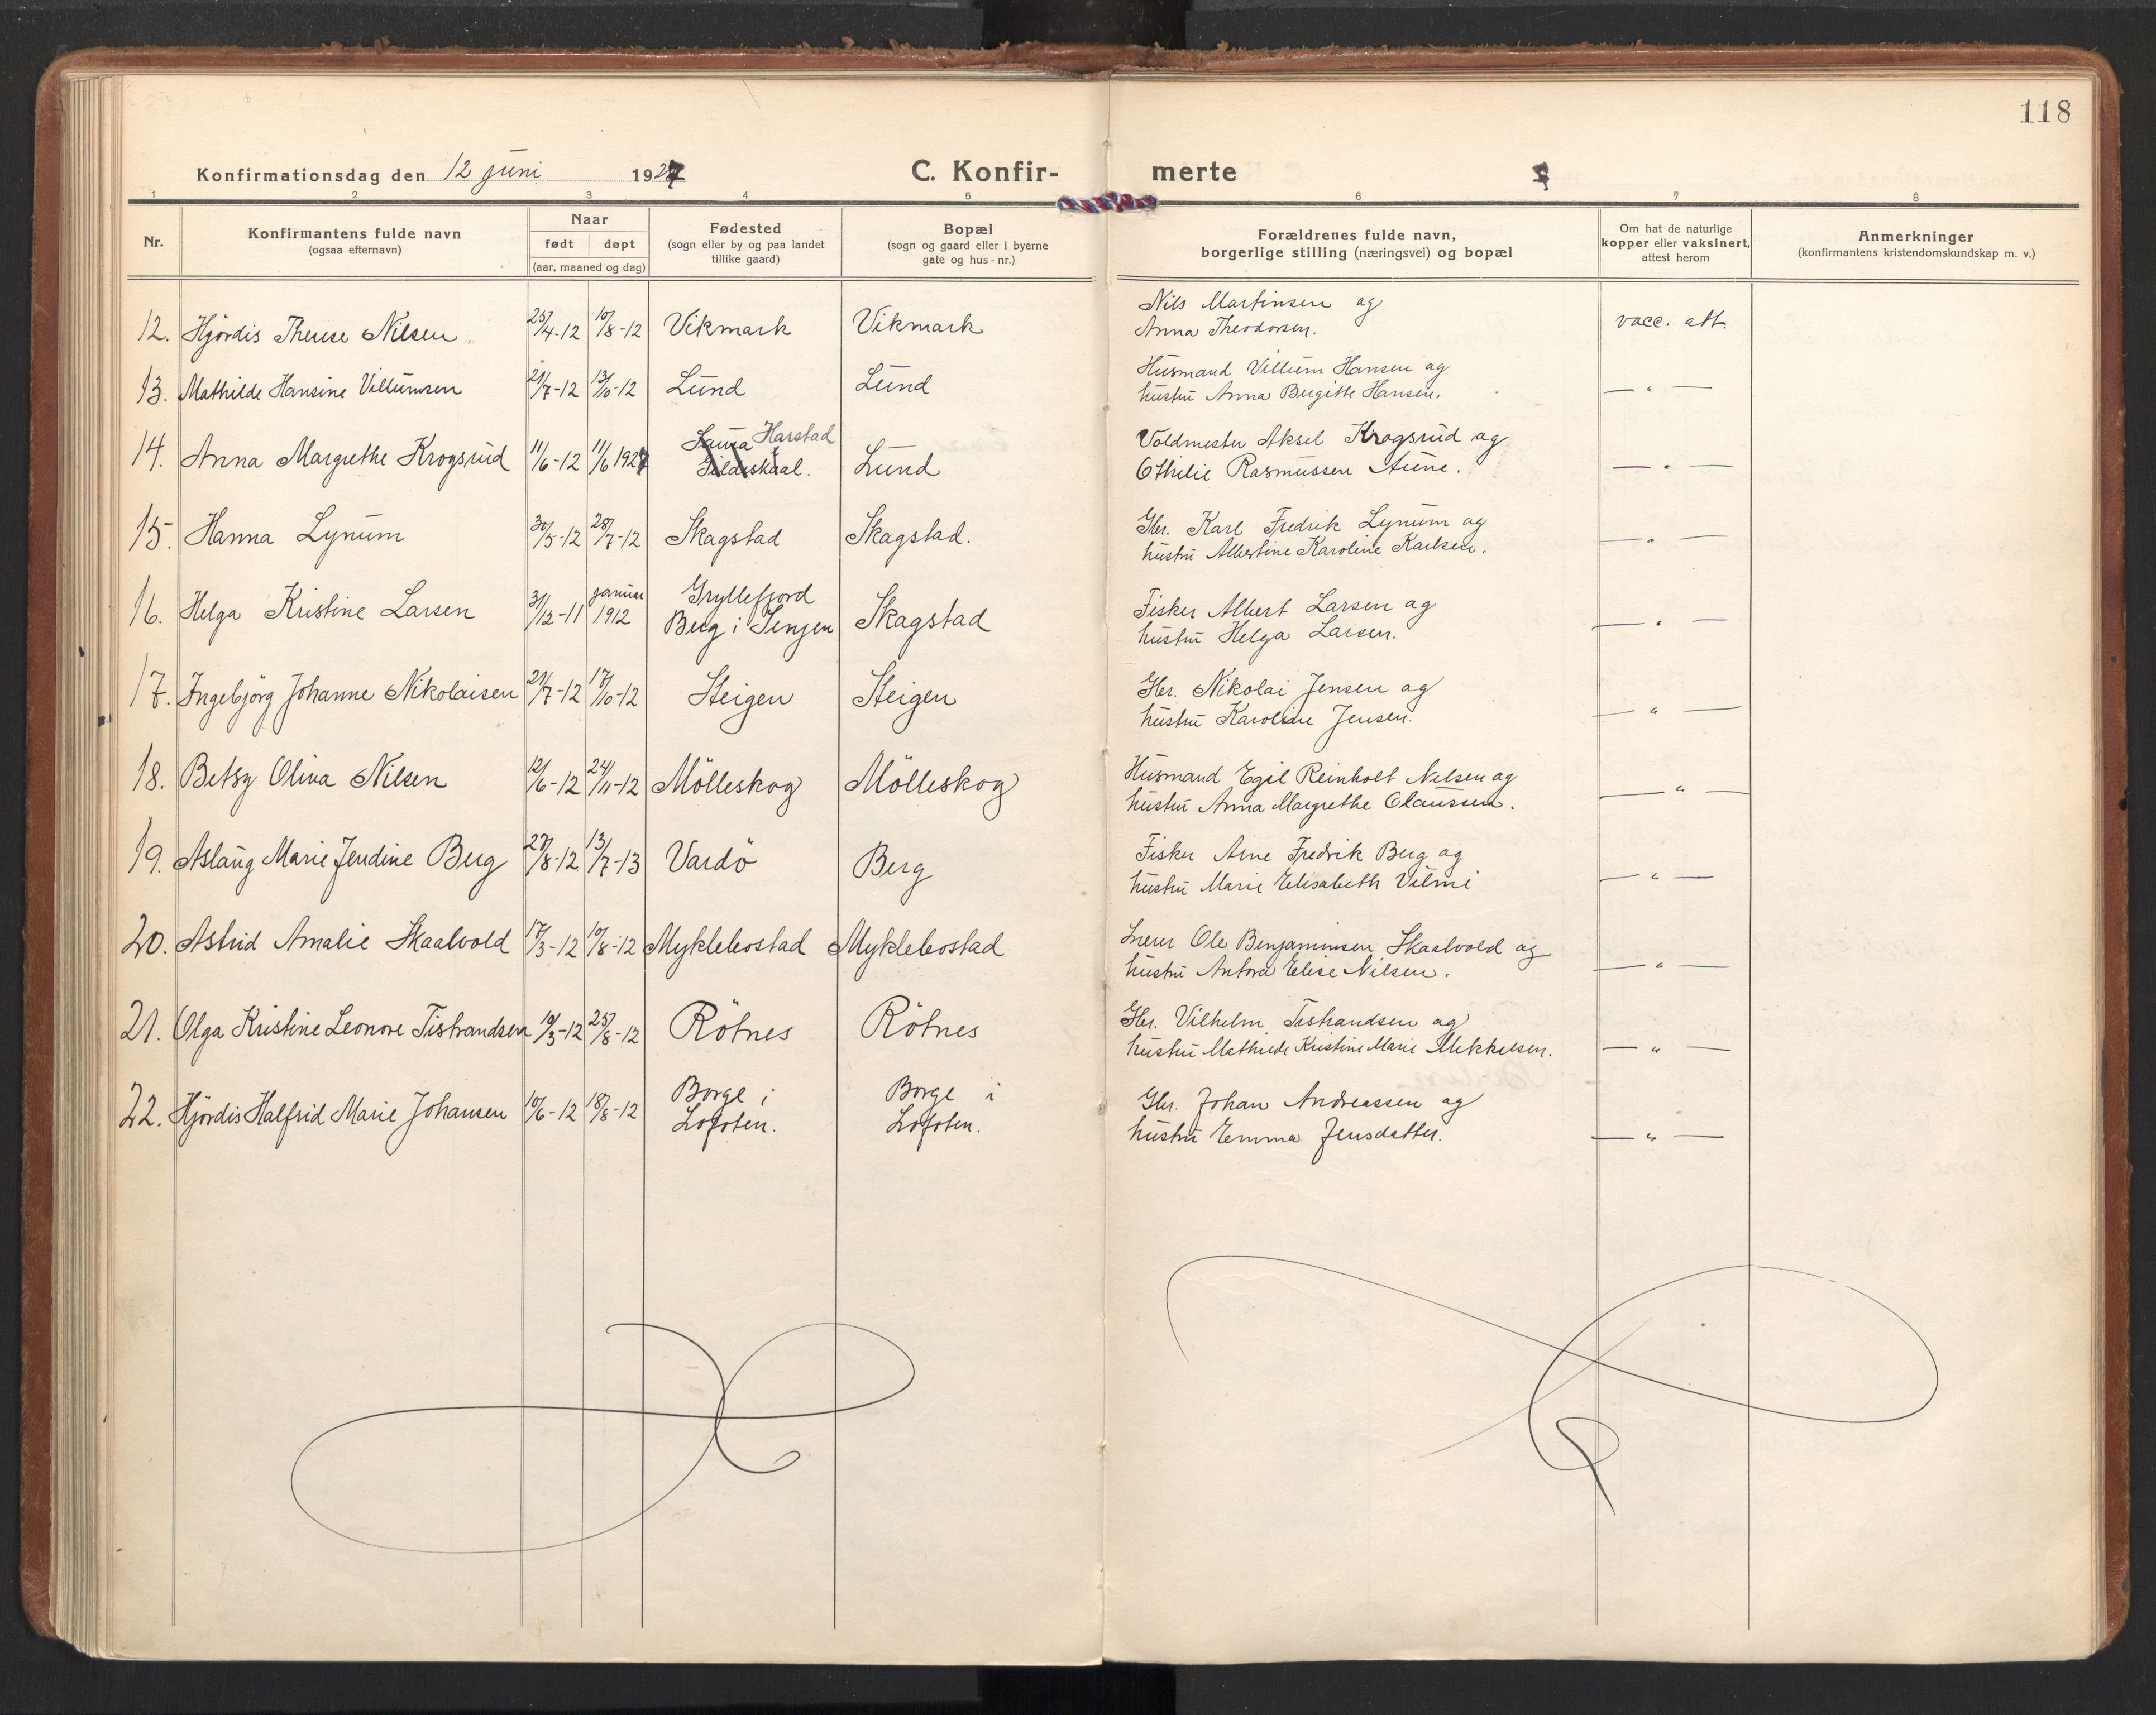 118
Konfirmationsdag den 12 juni 1927 C. Konfirmerte
1 2 3 4 5 6 7 8
Nr.
Konfirmantens fulde navn
(ogsaa efternavn)
Naar
født døpt
(aar, maaned og dag)
Fødested
(sogn eller by og paa landet
tillike gaard)
Bopæl
(sogn og gaard eller i byerne
gate og hus-nr.)
Forældrenes fulde navn,
borgerlige stilling (næringsvei) og bopæl
Om hat de naturlige
kopper eller vaksinert,
attest herom
Anmerkninger
(konfirmantens kristendomskundskap m. v.)
12. Hjördis Therese Nilsen 25/4-12 10/8-12 Vikmark Vikmark
Nils Martinsen og
Anna Theodorsen. vacc. att.
13. Mathilde Hansine Villumsen 21/7-12 13/10-12 Lund Lund
Husmand Villum Hansen og
hustru Anna Bergitte Hansen. — " —
14. Anna Margrethe Krogsrud 11/6-12 11/6 1927 Harstad
Gildeskaal. Lund
Voldmester Aksel Krogsrud og
Othilie Rasmussen Aune. — " —
15. Hanna Lynum 30/5-12 28/7-12 Skagstad Skagstad.
Gbr. Karl Fredrik Lynum og
hustru Albertine Karoline Karlsen. — " —
16. Helga Kristine Larsen 31/12-11 januar 1912 Gryllefjord
Berg i Senjen Skagstad
Fisker Albert Larsen og
hustru Helga Larsen. — " —
17. Ingebjörg Johanne Nikolaisen 21/7-12 17/10-12 Steigen Steigen
Gbr. Nikolai Jensen og
hustru Karoline Jensen. — " —
18. Betsy Oliva Nilsen 12/6-12 24/11-12 Mölleskog Mölleskog
Husmand Egil Reinholt Nilsen og
hustru Anna Margrethe Olaussen. — " —
19. Aslaug Marie Jendine Berg 27/8-12 13/7-13 Vardö Berg
Fisker Arne Fredrik Berg og
hustru Marie Elisabeth Vilmi — " —
20. Astrid Amalie Skaalvold 17/3-12 10/8-12 Myklebostad Myklebostad
Ole Benjaminsen Skaalvold og
hustru Antora Elise Nilsen. — " —
21. Olga Kristine Leonore Tistrandsen 10/3-12 25/8-12 Rötnes Rötnes
Gbr. Vilhelm Tistrandsen og
hustru Mathilde Kristine Marie Mikkelsen. — " —
22. Hjördis Halfrid Marie Johansen 10/6-12 18/8-12 Borge i
Lofoten. Borge i
Lofoten.
Gbr. Johan Andreassen og
hustru Emma Jensdatter. — " —